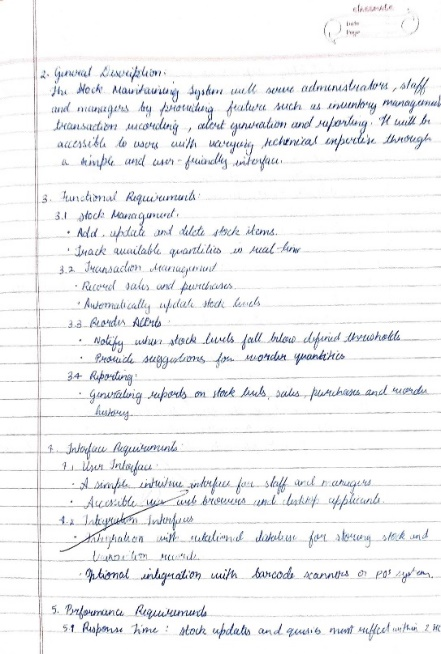 classmate
Date
Page
2. General Description:
The Stock Maintaining System will serve administrators, staff
and managers by providing feature such as inventory management
transaction recording, alert generation and reporting. It will be
accessible to users with varying technical expertise through
a simple and user-friendly interface.
3. Functional Requirements:
3.1 Stock Management.
• Add, update and delete stock items.
• Track available quantities in real-time
3.2. Transaction Management
• Record sales and purchases.
• Automatically update stock levels
3.3. Reorder Alerts:
• Notify when stock levels fall below defined thresholds
• Provide suggestions for reorder quantities
3.4 Reporting:
• Generating reports on stock levels, sales, purchases and reorder
history.
4. Interface Requirements:
4.1 User Interface:
• A simple intuitive interface for staff and managers
• Accessible via web browsers and desktop
4.2 Integration Interfaces
• Integration with relational database for storing stock and
transaction records.
• Optional integration with barcode scanners or POS system.
5. Performance Requirements
5.1 Response Time: stock updates and queries must reflect within 2